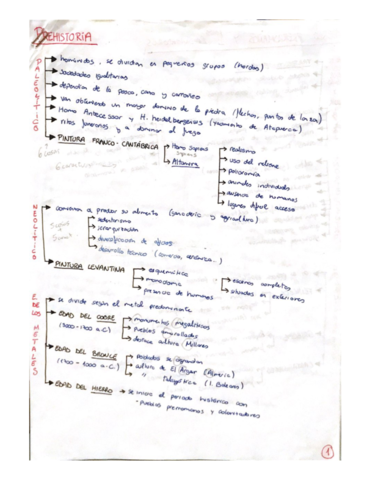 PREHISTORIA
PALEOLÍTICO
homínidos, se dividían en pequeños grupos (hordas)
sociedades igualitarias
dependían de la pesca, caza y carroñeo
van obteniendo un mayor dominio de la piedra (flechas, puntas de lanza)
Homo Antecessor y H. heidelbergensis (yacimientos de Atapuerca)
ritos funerarios y a dominar el fuego
PINTURA FRANCO-CANTÁBRICA
Homo Sapiens Sapiens
Altamira
realismo
uso del relieve
policromía
animales individuales
ausencia de humanos
lugares difícil acceso
NEOLÍTICO
comienzan a producir su alimento (ganadería y agricultura)
sedentarismo
jerarquización
diversificación de oficios
desarrollo técnico (comercio, cerámica...)
PINTURA LEVANTINA
esquemática
monocroma
presencia de humanos
escenas completas
situadas en exteriores
E DE LOS METALES
se divide según el metal predominante
EDAD DEL COBRE
monumentos megalíticos
pueblos amurallados
destaca cultura Millares
EDAD DEL BRONCE
(1700 - 1000 a.C.)
poblados se agrandan
cultura de El Argar (Almería)
" Talayótica (I. Baleares)
EDAD DEL HIERRO
se inicia el período histórico con
pueblos prerromanos y colonizadores
1